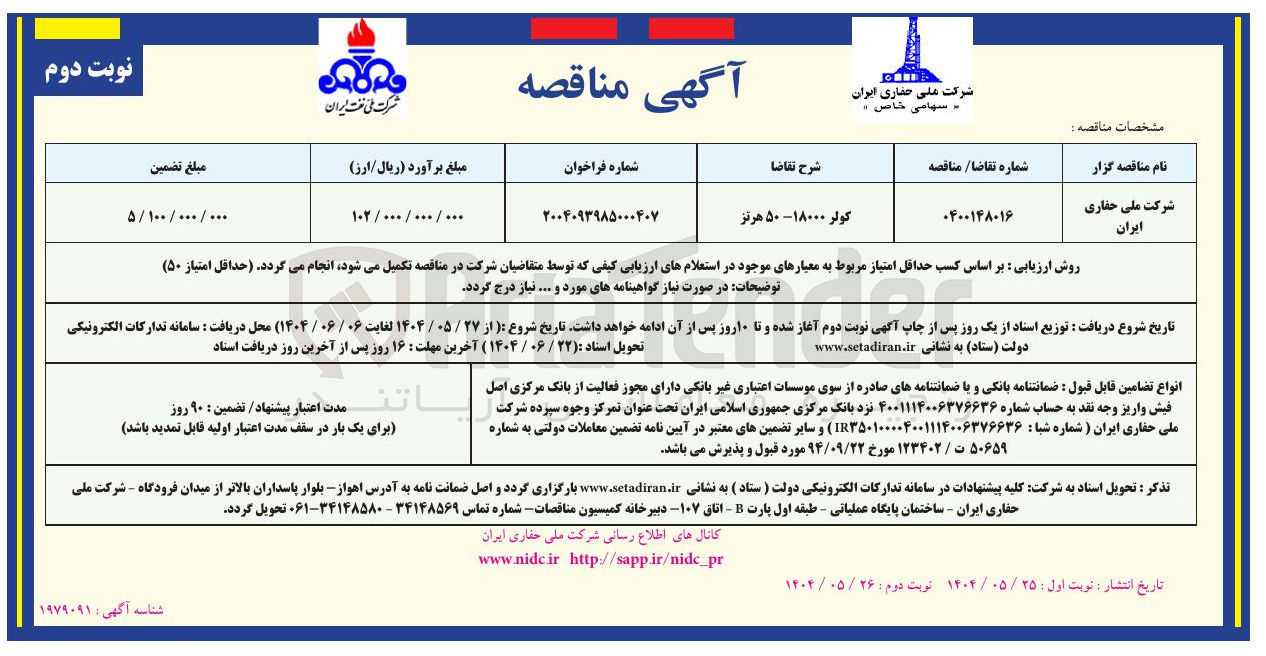 نوبت دوم
شرکت ملی نفت ایران
آگهی مناقصه
شرکت ملی حفاری ایران
« سهامی خاص »
مشخصات مناقصه :
نام مناقصه گزار
شماره تقاضا/ مناقصه
شرح تقاضا
شماره فراخوان
مبلغ برآورد (ریال/ارز)
مبلغ تضمین
شرکت ملی حفاری
ایران
۰۴۰۰۱۴۸۰۱۶
کولر ۱۸۰۰۰- ۵۰ هرتز
۲۰۰۴۰۹۳۹۸۵۰۰۰۴۰۷
۱۰۲ / ۰۰۰ / ۰۰۰ / ۰۰۰
۵ / ۱۰۰ / ۰۰۰ / ۰۰۰
روش ارزیابی : بر اساس کسب حداقل امتیاز مربوط به معیارهای موجود در استعلام های ارزیابی کیفی که توسط متقاضیان شرکت در مناقصه تکمیل می شود، انجام می گردد. (حداقل امتیاز ۵۰)
توضیحات: در صورت نیاز گواهینامه های مورد و ... نیاز درج گردد.
تاریخ شروع دریافت : توزیع اسناد از یک روز پس از چاپ آگهی نوبت دوم آغاز شده و تا ۱۰روز پس از آن ادامه خواهد داشت. تاریخ شروع :( از ۲۷ / ۰۵ / ۱۴۰۴ لغایت ۰۶ / ۰۶ / ۱۴۰۴) محل دریافت : سامانه تدارکات الکترونیکی
دولت (ستاد) به نشانی www.setadiran.ir تحویل اسناد :(۲۲ / ۰۶ / ۱۴۰۴ ) آخرین مهلت : ۱۶ روز پس از آخرین روز دریافت اسناد
انواع تضامین قابل قبول : ضمانتنامه بانکی و یا ضمانتنامه های صادره از سوی موسسات اعتباری غیر بانکی دارای مجوز فعالیت از بانک مرکزی اصل
فیش واریز وجه نقد به حساب شماره ۴۰۰۱۱۱۴۰۰۶۳۷۶۶۳۶ نزد بانک مرکزی جمهوری اسلامی ایران تحت عنوان تمرکز وجوه سپرده شرکت
ملی حفاری ایران ( شماره شبا : IR۳۵۰۱۰۰۰۰۴۰۰۱۱۱۴۰۰۶۳۷۶۶۳۶ ) و سایر تضمین های معتبر در آیین نامه تضمین معاملات دولتی به شماره
۵۰۶۵۹ ت / ۱۲۳۴۰۲ مورخ ۹۴/۰۹/۲۲ مورد قبول و پذیرش می باشد.
مدت اعتبار پیشنهاد/ تضمین : ۹۰ روز
(برای یک بار در سقف مدت اعتبار اولیه قابل تمدید باشد)
تذکر : تحویل اسناد به شرکت: کلیه پیشنهادات در سامانه تدارکات الکترونیکی دولت ( ستاد ) به نشانی www.setadiran.ir بارگزاری گردد و اصل ضمانت نامه به آدرس اهواز- بلوار پاسداران بالاتر از میدان فرودگاه - شرکت ملی
حفاری ایران - ساختمان پایگاه عملیاتی - طبقه اول پارت B - اتاق ۱۰۷- دبیرخانه کمیسیون مناقصات- شماره تماس ۳۴۱۴۸۵۶۹ - ۳۴۱۴۸۵۸۰-۰۶۱ تحویل گردد.
کانال های اطلاع رسانی شرکت ملی حفاری ایران
www.nidc.ir http://sapp.ir/nidc_pr
تاریخ انتشار : نوبت اول : ۲۵ / ۰۵ / ۱۴۰۴ نوبت دوم : ۲۶ / ۰۵ / ۱۴۰۴
شناسه آگهی : ۱۹۷۹۰۹۱
AriaTender